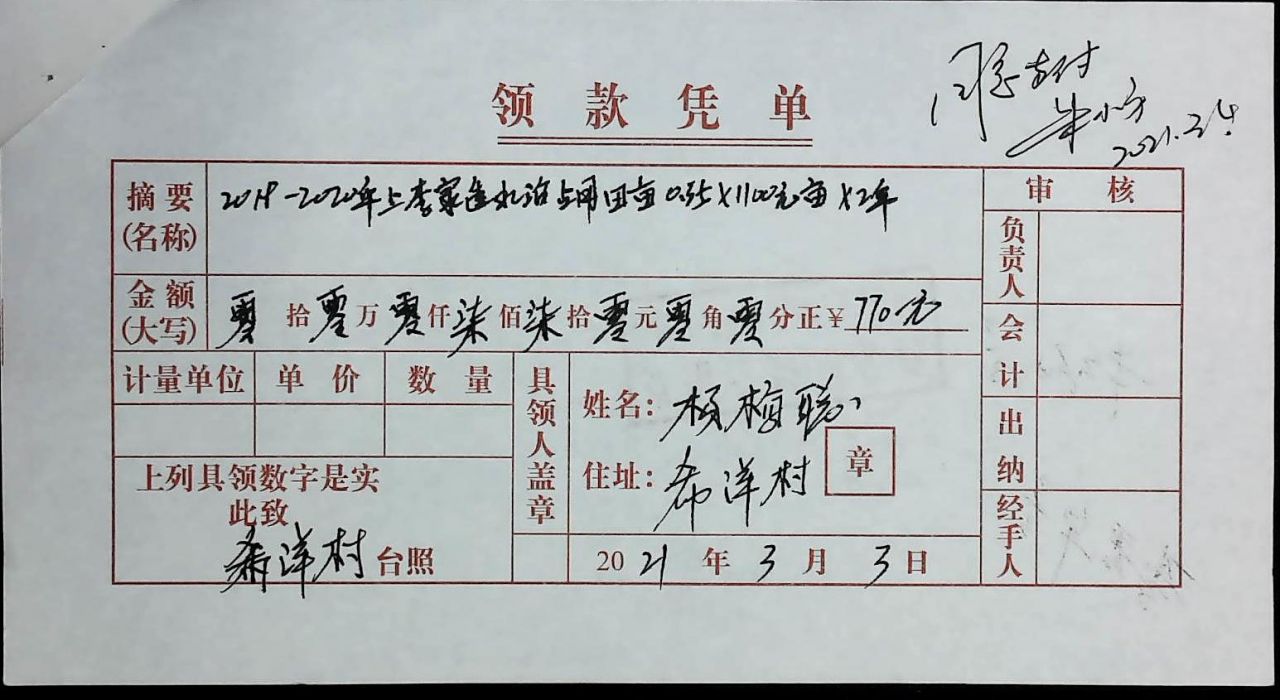 领款凭单
同意支付
朱小方
2021.3.4.
摘要(名称) 2019-2020年上李家造水沿占用田亩 0.35×1100元亩×2年
金额(大写) 零拾零万零仟柒佰柒拾零元零角零分正¥770元
计量单位 单价 数量
上列具领数字是实
此致
希洋村台照
具领人盖章
姓名：杨梅聪
住址：希洋村
章
2021年3月3日
审核
负责人
会计
出纳
经手人